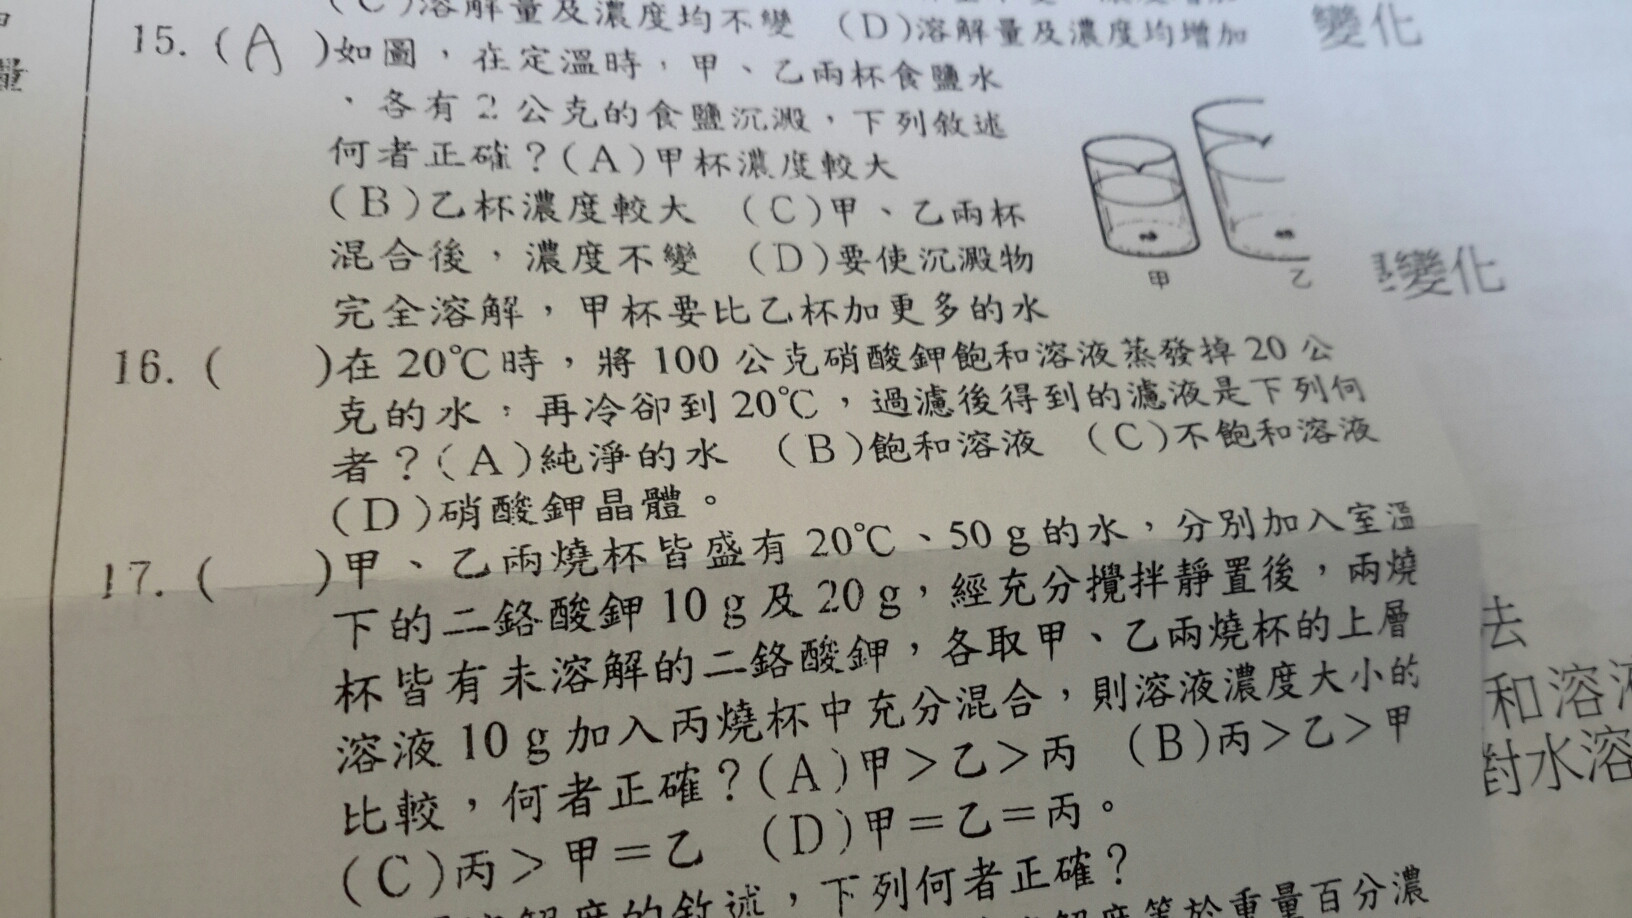 (C)溶解量及濃度均不變 (D)溶解量及濃度均增加
變化
量
15. (A)如圖，在定溫時，甲、乙兩杯食鹽水
、各有2公克的食鹽沉澱，下列敘述
何者正確？(A)甲杯濃度較大
(B)乙杯濃度較大 (C)甲、乙兩杯
混合後，濃度不變 (D)要使沉澱物
完全溶解，甲杯要比乙杯加更多的水
甲
乙
變化
16. ( )在20℃時，將100公克硝酸鉀飽和溶液蒸發掉20公
克的水，再冷卻到20℃，過濾後得到的濾液是下列何
者？(A)純淨的水 (B)飽和溶液 (C)不飽和溶液
(D)硝酸鉀晶體。
17. ( )甲、乙兩燒杯皆盛有20℃、50 g的水，分別加入室溫
下的二鉻酸鉀10 g及20 g，經充分攪拌靜置後，兩燒
杯皆有未溶解的二鉻酸鉀，各取甲、乙兩燒杯的上層
溶液10 g加入丙燒杯中充分混合，則溶液濃度大小的
比較，何者正確？(A)甲＞乙＞丙 (B)丙＞乙＞甲
(C)丙＞甲＝乙 (D)甲＝乙＝丙。
去
和溶
對水溶
度的敘述，下列何者正確？
解度等於重量百分濃